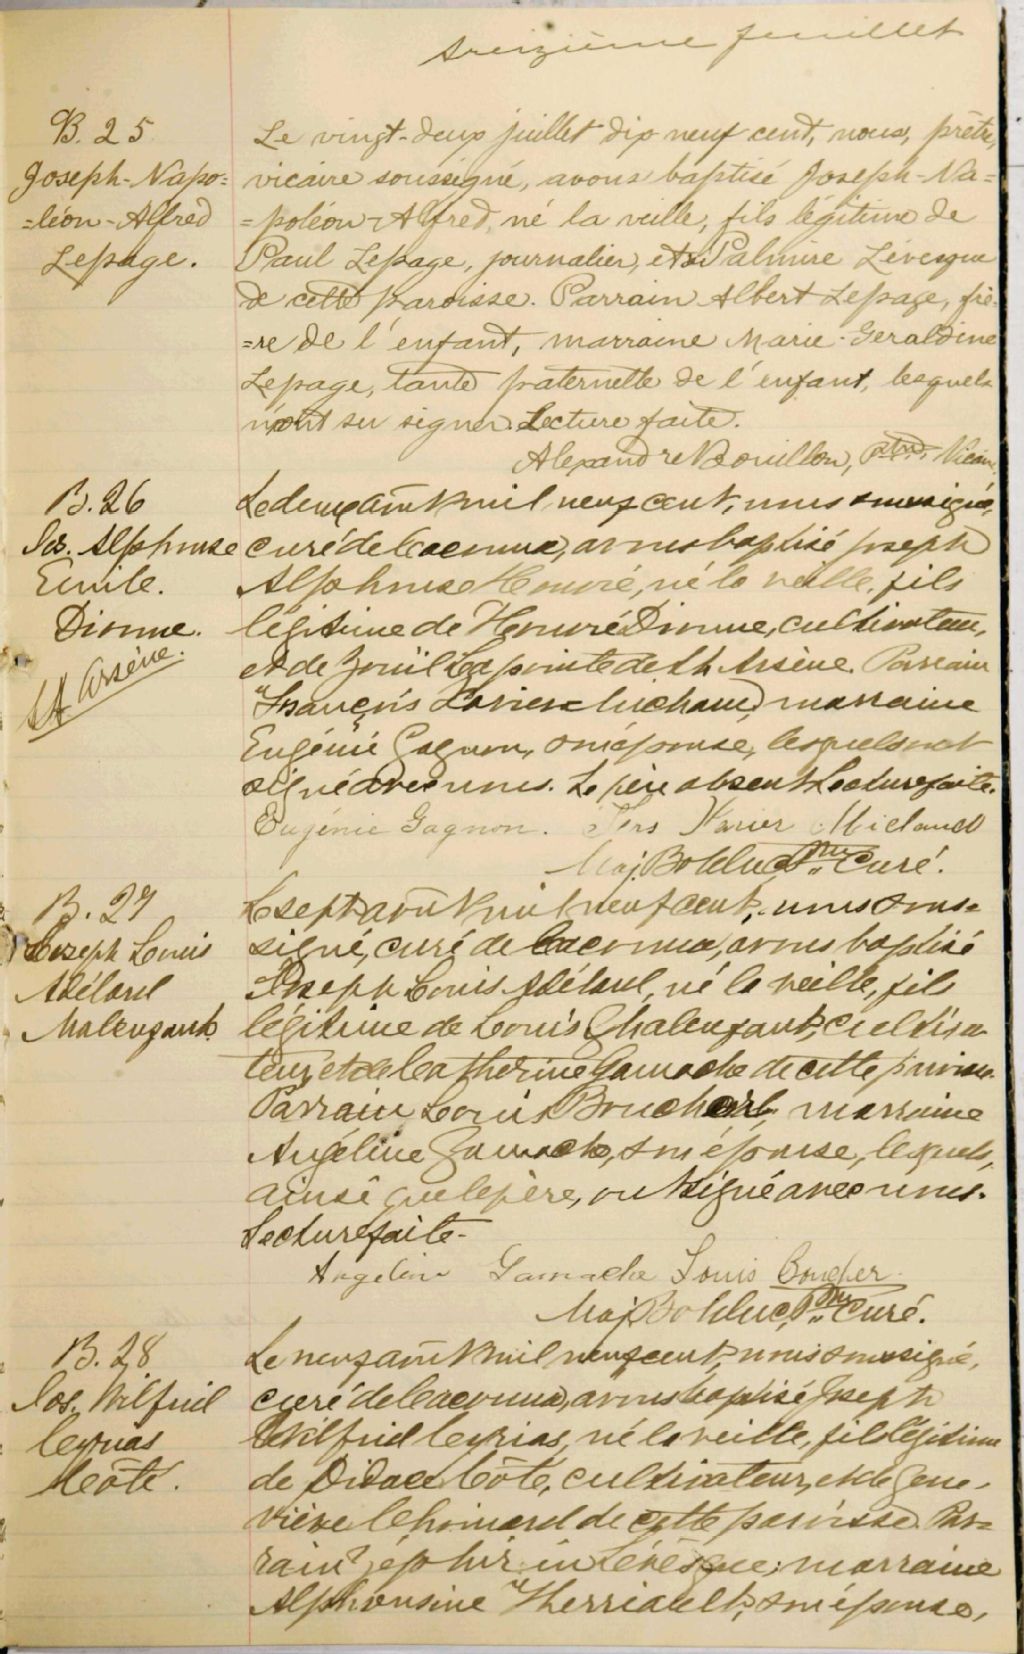 treizième feuillet
B. 25
Joseph-Napo=
=léon-Alfred
Lepage.
Le vingt-deux juillet dix neuf cent, nous, prêtre,
vicaire soussigné, avons baptisé Joseph-Na=
=poléon-Alfred, né la veille, fils légitime de
Paul Lepage, journalier, et de Palmire Lévesque
de cette paroisse. Parrain Albert Lepage, frè-
=re de l'enfant, marraine Marie-Geraldine
Lepage, tante paternelle de l'enfant, lesquels
n'ont su signer. Lecture faite.
Alexandre Bouillon, Ptre, Vicaire
B. 26
Jos. Alphonse
Emile.
Dionne.
St Arsène.
Le deux août mil neuf cent, nous soussigné,
curé de Cacouna, avons baptisé Joseph
Alphonse Honoré, né la veille, fils
légitime de Honoré Dionne, cultivateur,
et de Lapointe de St Arsène. Parrain
François Xavier Michaud, marraine
Eugénie Gagnon, son épouse, lesquels ont
signé avec nous. Le père absent. Lecture faite.
Eugénie Gagnon. Frs Xavier Michaud
Maj. Bolduc Ptre Curé.
B. 27
Joseph Louis
Adélard
Malenfant.
Le sept août mil neuf cent, nous sous=
signé, curé de Cacouna, avons baptisé
Joseph Louis Adélard, né la veille, fils
légitime de Louis Malenfant, cultiva-
teur, et de Catherine Gamache de cette paroisse.
Parrain Louis Boucher, marraine
Angéline Gamache, son épouse, lesquels,
ainsi que le père, ont signé avec nous.
Lecture faite-
Angeline Gamache Louis Boucher
Maj Bolduc, Ptre Curé.
B. 28
Jos. Wilfrid
Cyrias
Côté.
Le neuf août mil neuf cent, nous soussigné,
curé de Cacouna, avons baptisé Joseph
Wilfrid Cyrias, né la veille, fils légitime
de Didace Côté, cultivateur, et de Gene-
viève Chouinard de cette paroisse. Par=
rain Zéphirin Lévesque, marraine
Alphonsine Therriault, son épouse,